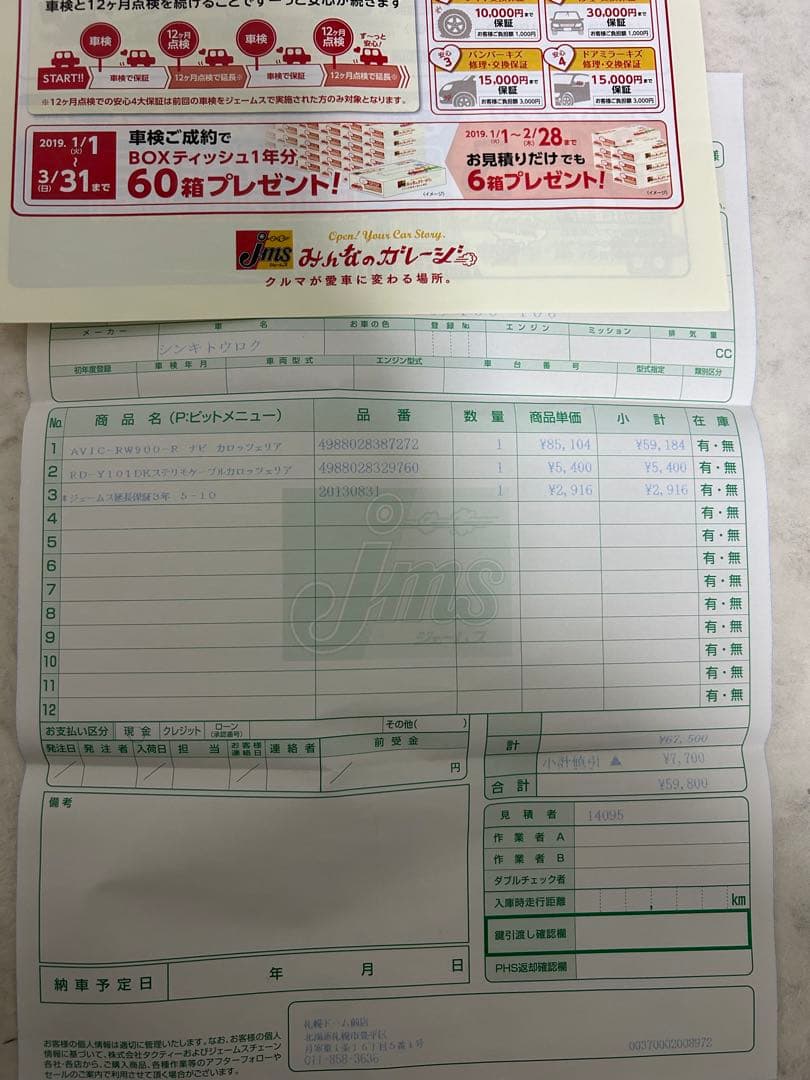 車検と12ヶ月点検を続けることでず〜っと安心が続きます
車検
12ヶ月点検
車検
12ヶ月点検
ず〜っと安心!
START!!
車検で保証
12ヶ月点検で延長※
車検で保証
12ヶ月点検で延長※
※12ヶ月点検での安心4大保証は前回の車検をジェームスで実施された方のみ対象となります。
10,000円まで保証
お客様ご負担額 1,000円
30,000円まで保証
お客様ご負担額 3,000円
安心3
バンパーキズ修理・交換保証
15,000円まで保証
お客様ご負担額 3,000円
安心4
ドアミラーキズ修理・交換保証
15,000円まで保証
お客様ご負担額 3,000円
2019. 1/1(火)〜3/31(日)まで
車検ご成約で
BOXティッシュ1年分
60箱プレゼント!
(イメージ)
2019. 1/1(火)〜2/28(木)まで
お見積りだけでも
6箱プレゼント!
(イメージ)
Open! Your Car Story.
jms ジェームス みんなのガレージ
クルマが愛車に変わる場所。
様
メーカー 車名 お車の色 登録No. エンジン ミッション 排気量
シンキトウロク CC
初年度登録 車検年月 車両型式 エンジン型式 車台番号 型式指定 類別区分
No. 商品名(P:ピットメニュー) 品番 数量 商品単価 小計 在庫
1 AVIC-RW900-R ナビ カロッツェリア 4988028387272 1 ¥85,104 ¥59,184 有・無
2 RD-Y101DKステリモケーブルカロッツェリア 4988028329760 1 ¥5,400 ¥5,400 有・無
3 *ジェームス延長保証3年 5-10 20130831 1 ¥2,916 ¥2,916 有・無
4 有・無
5 有・無
6 有・無
7 有・無
8 有・無
9 有・無
10 有・無
11 有・無
12 有・無
jms
ジェームス
お支払い区分 現金 クレジット ローン(承認番号) その他( )
発注日 発注者 入荷日 担当 お客様連絡日 連絡者 前受金
円
計 ¥67,500
小計値引 ▲ ¥7,700
合計 ¥59,800
備考
見積者 14095
作業者A
作業者B
ダブルチェック者
入庫時走行距離 , km
鍵引渡し確認欄
PHS返却確認欄
納車予定日 年 月 日
お客様の個人情報は適切に管理いたします。なお、お客様の個人
情報に基づいて、株式会社タクティーおよびジェームスチェーン
各社・各店から、ご購入商品、各種作業等のアフターフォローや
セールのご案内で利用させて頂く場合がございます。
札幌ドーム前店
北海道札幌市豊平区
月寒東1条16丁目5番1号
011-858-3636
00370002008972